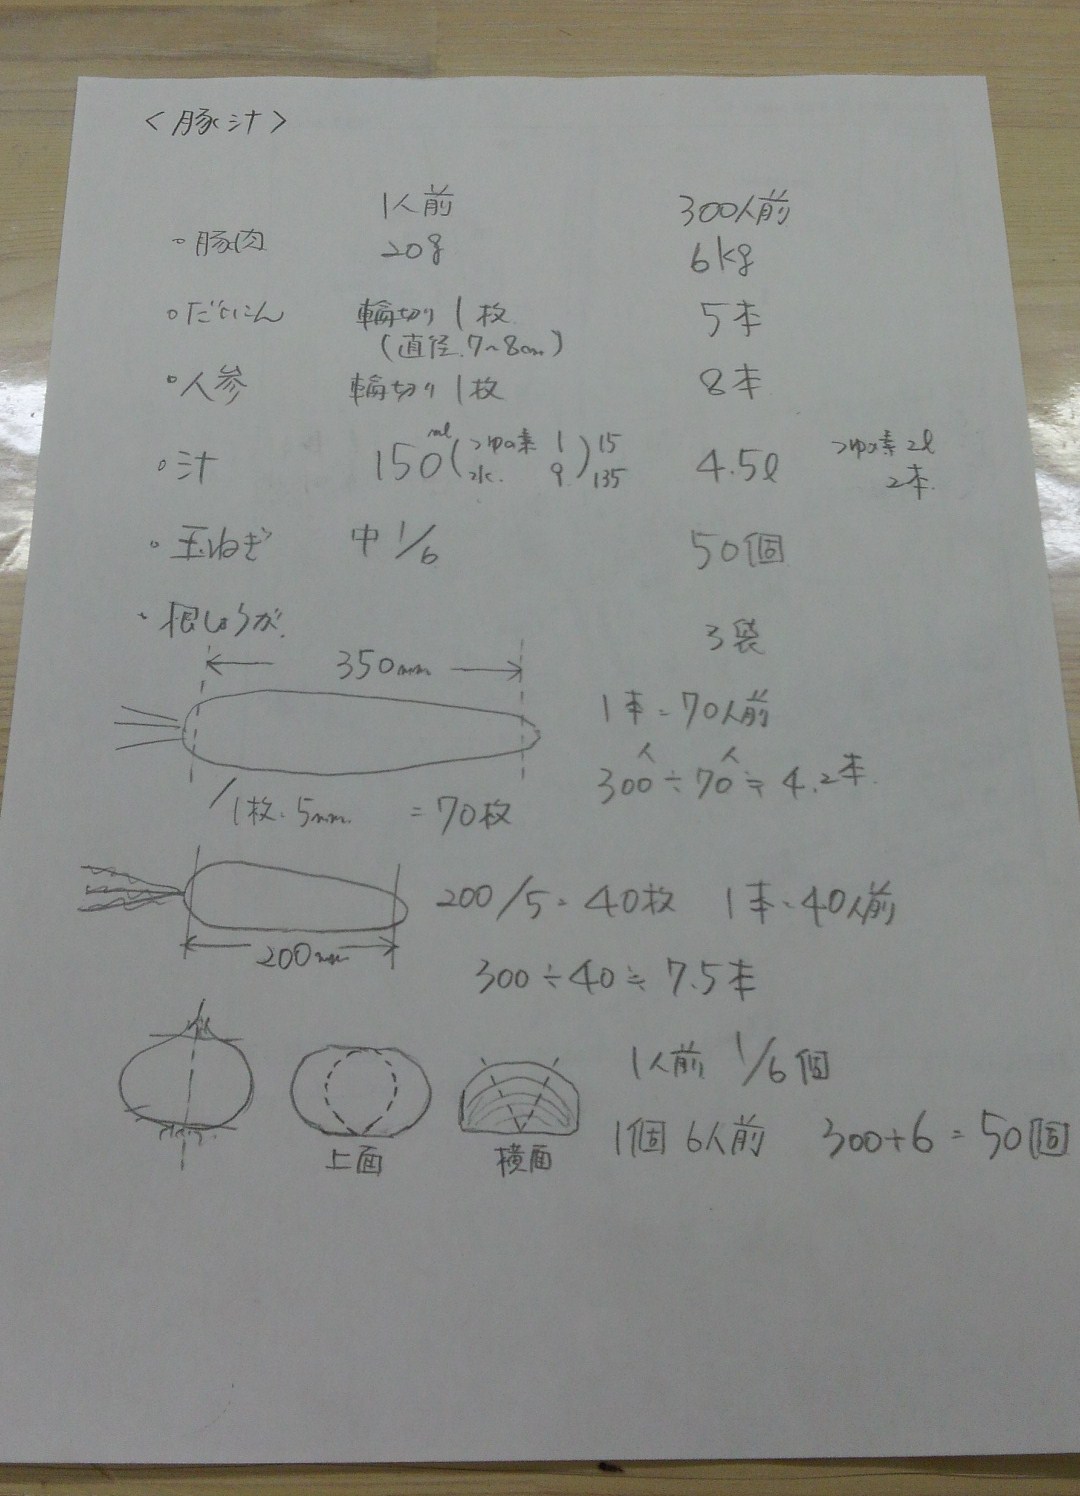 ＜豚汁＞
1人前 300人前
・豚肉 20g 6kg
・だいこん 輪切り 1枚 5本
(直径 7~8cm)
・人参 輪切り 1枚 8本
・汁 150ml (つゆの素 1 水 9) 15 135 4.5l つゆの素 2l 2本
・玉ねぎ 中 1/6 50個
・根しょうが 3袋
350mm
1本=70人前
300人÷70人≒4.2本
1枚 5mm =70枚
200/5=40枚 1本=40人前
200mm
300÷40≒7.5本
1人前 1/6個
1個 6人前 300÷6=50個
上面 横面